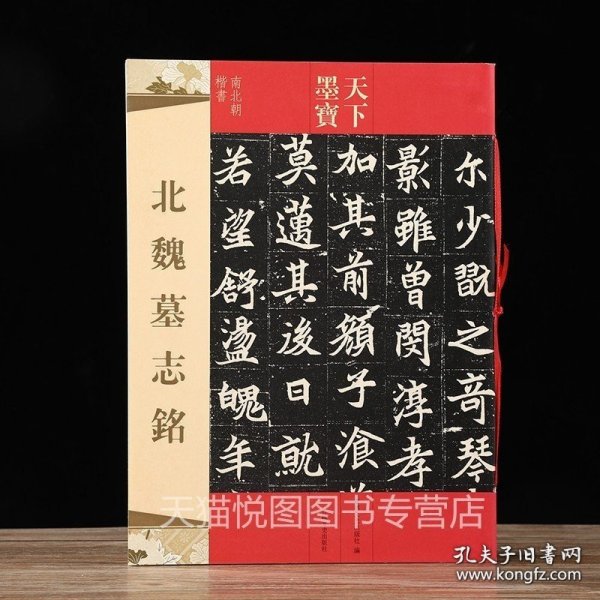 天下
墨寶
南北朝
楷書
北魏墓志銘
尔少翫之竒琴
影雖曾閔淳孝
加其前顏子飡
莫邁其後日就
若望舒盪魄年
版社 編
出版社
天猫悦图图书专营店
孔夫子旧书网
www.kongfz.com